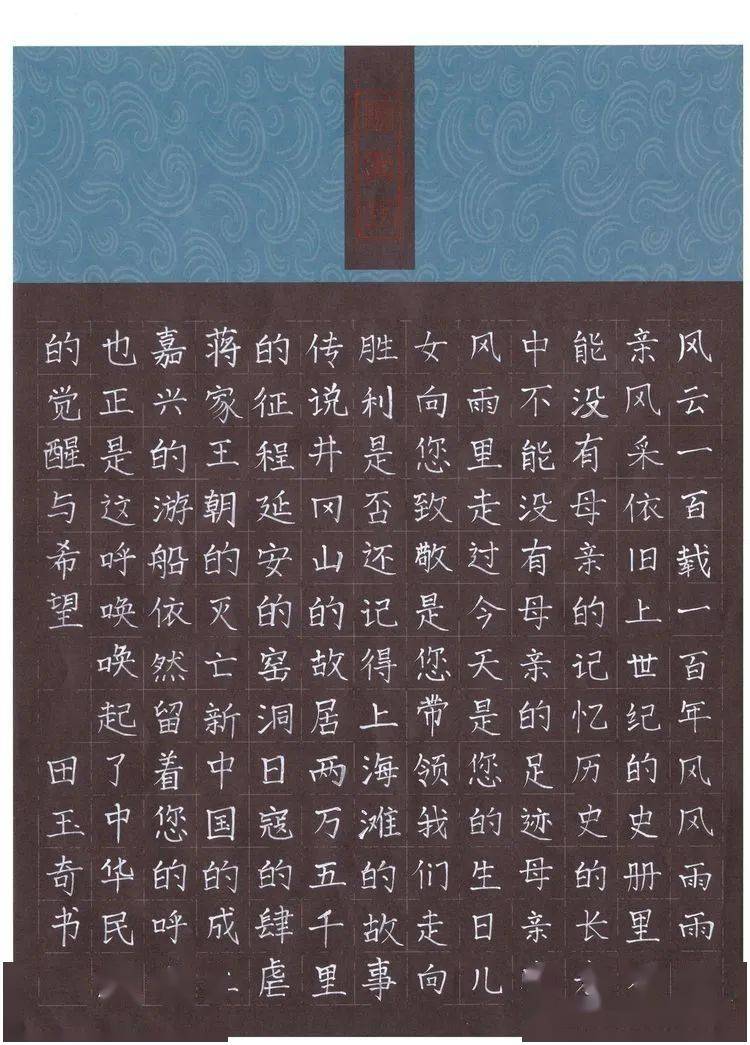 风云一百载一百年风风雨雨
亲风采依旧上世纪的史册里
能没有母亲的记忆历史的长
中不能没有母亲的足迹母亲
风雨里走过今天是您的生日儿
女向您致敬是您带领我们走向
胜利是否还记得上海滩的故事
传说井冈山的故居两万五千里
的征程延安的窑洞日寇的肆虐
蒋家王朝的灭亡新中国的成
嘉兴的游船依然留着您的呼
也正是这呼唤唤起了中华民
的觉醒与希望
田王奇书